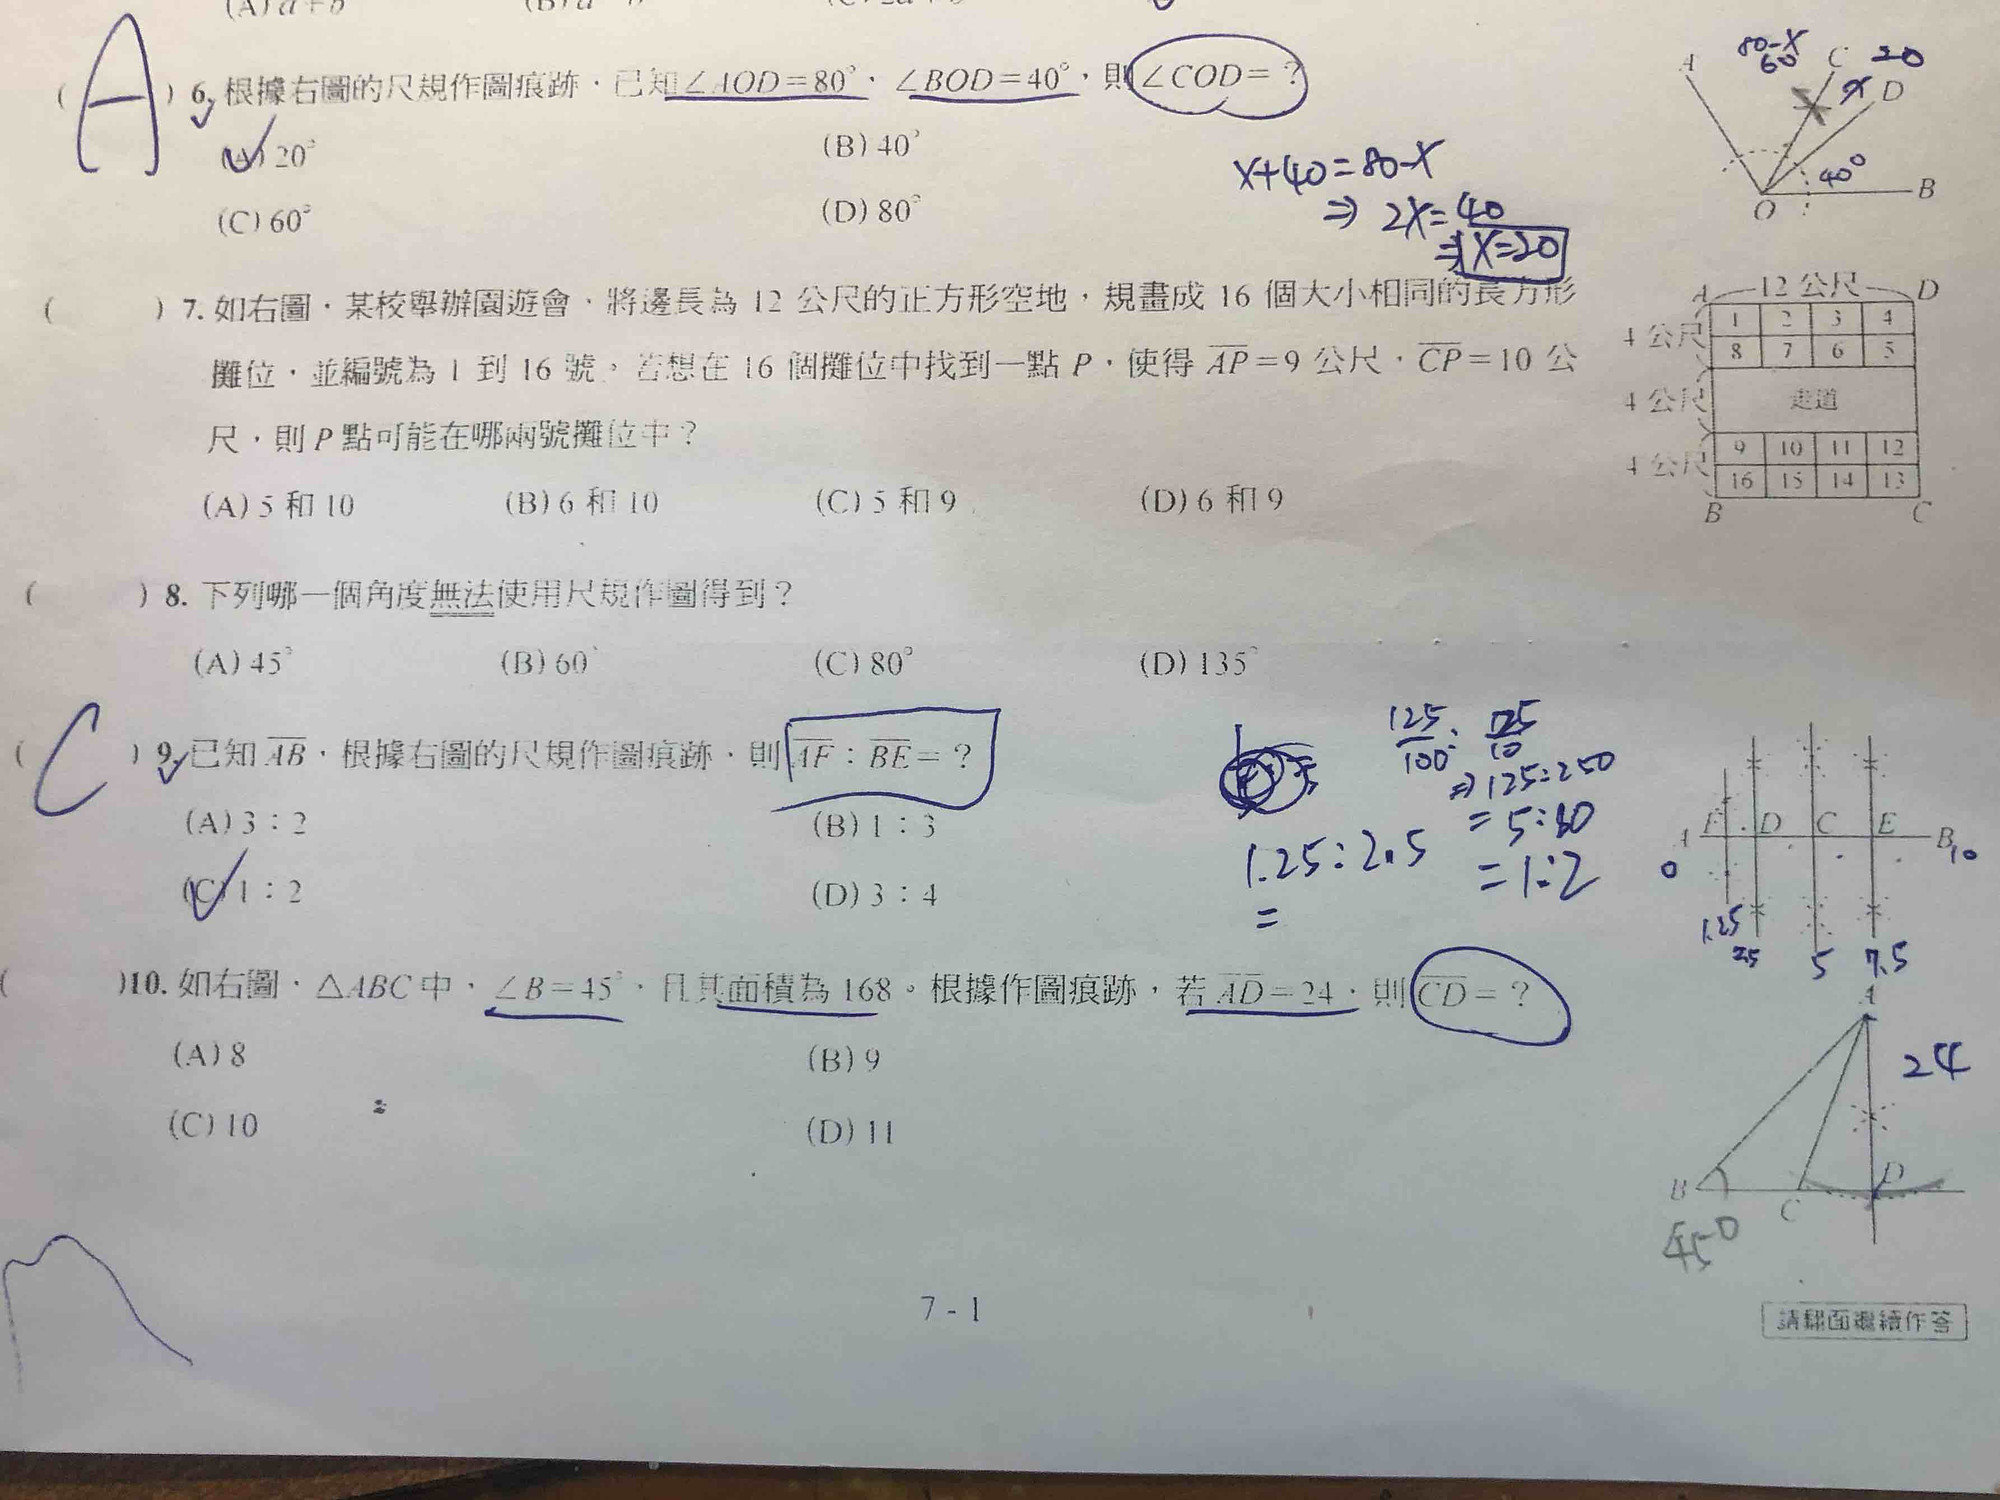 A
( ) 6. 根據右圖的尺規作圖痕跡，已知∠AOD=80°，∠BOD=40°，則∠COD=？
(A) 20° (B) 40°
(C) 60° (D) 80°
x+40=80-x
⇒ 2x=40
⇒ x=20
80-x
60
A C 20
x D
40°
O B
( ) 7. 如右圖，某校舉辦園遊會，將邊長為 12 公尺的正方形空地，規畫成 16 個大小相同的長方形
攤位，並編號為 1 到 16 號。若想在 16 個攤位中找到一點 P，使得 AP=9 公尺，CP=10 公
尺，則 P 點可能在哪兩號攤位中？
(A) 5 和 10 (B) 6 和 10 (C) 5 和 9 (D) 6 和 9
A 12 公尺 D
4 公尺 1 2 3 4
8 7 6 5
4 公尺 走道
4 公尺 9 10 11 12
16 15 14 13
B C
( ) 8. 下列哪一個角度無法使用尺規作圖得到？
(A) 45° (B) 60° (C) 80° (D) 135°
C
( ) 9. 已知 AB，根據右圖的尺規作圖痕跡，則 AF：BE=？
(A) 3：2 (B) 1：3
(C) 1：2 (D) 3：4
125/100 : 25/10
⇒ 125:250
= 5:10
= 1:2
1.25:2.5
=
A F D C E B
0 10
1.25 2.5 5 7.5
( ) 10. 如右圖，△ABC 中，∠B=45°，且其面積為 168。根據作圖痕跡，若 AD=24，則 CD=？
(A) 8 (B) 9
(C) 10 (D) 11
A
24
B C D
45°
7-1
請翻面繼續作答